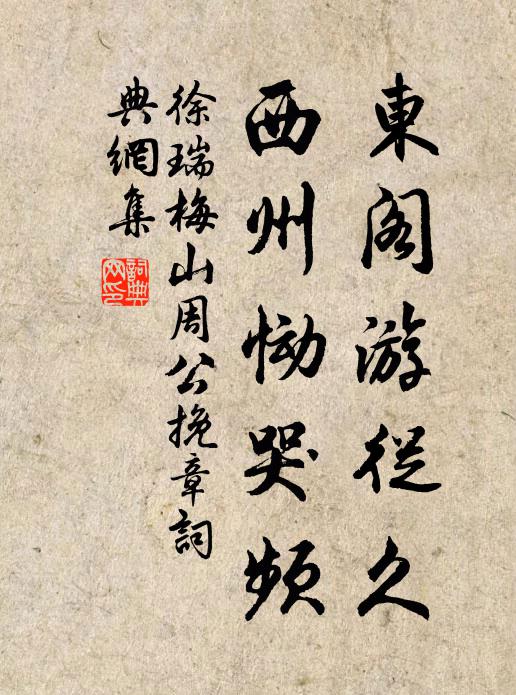 東阁游從久
西州恸哭频
徐瑞梅山周公挽章詞
典網集
詞典网印